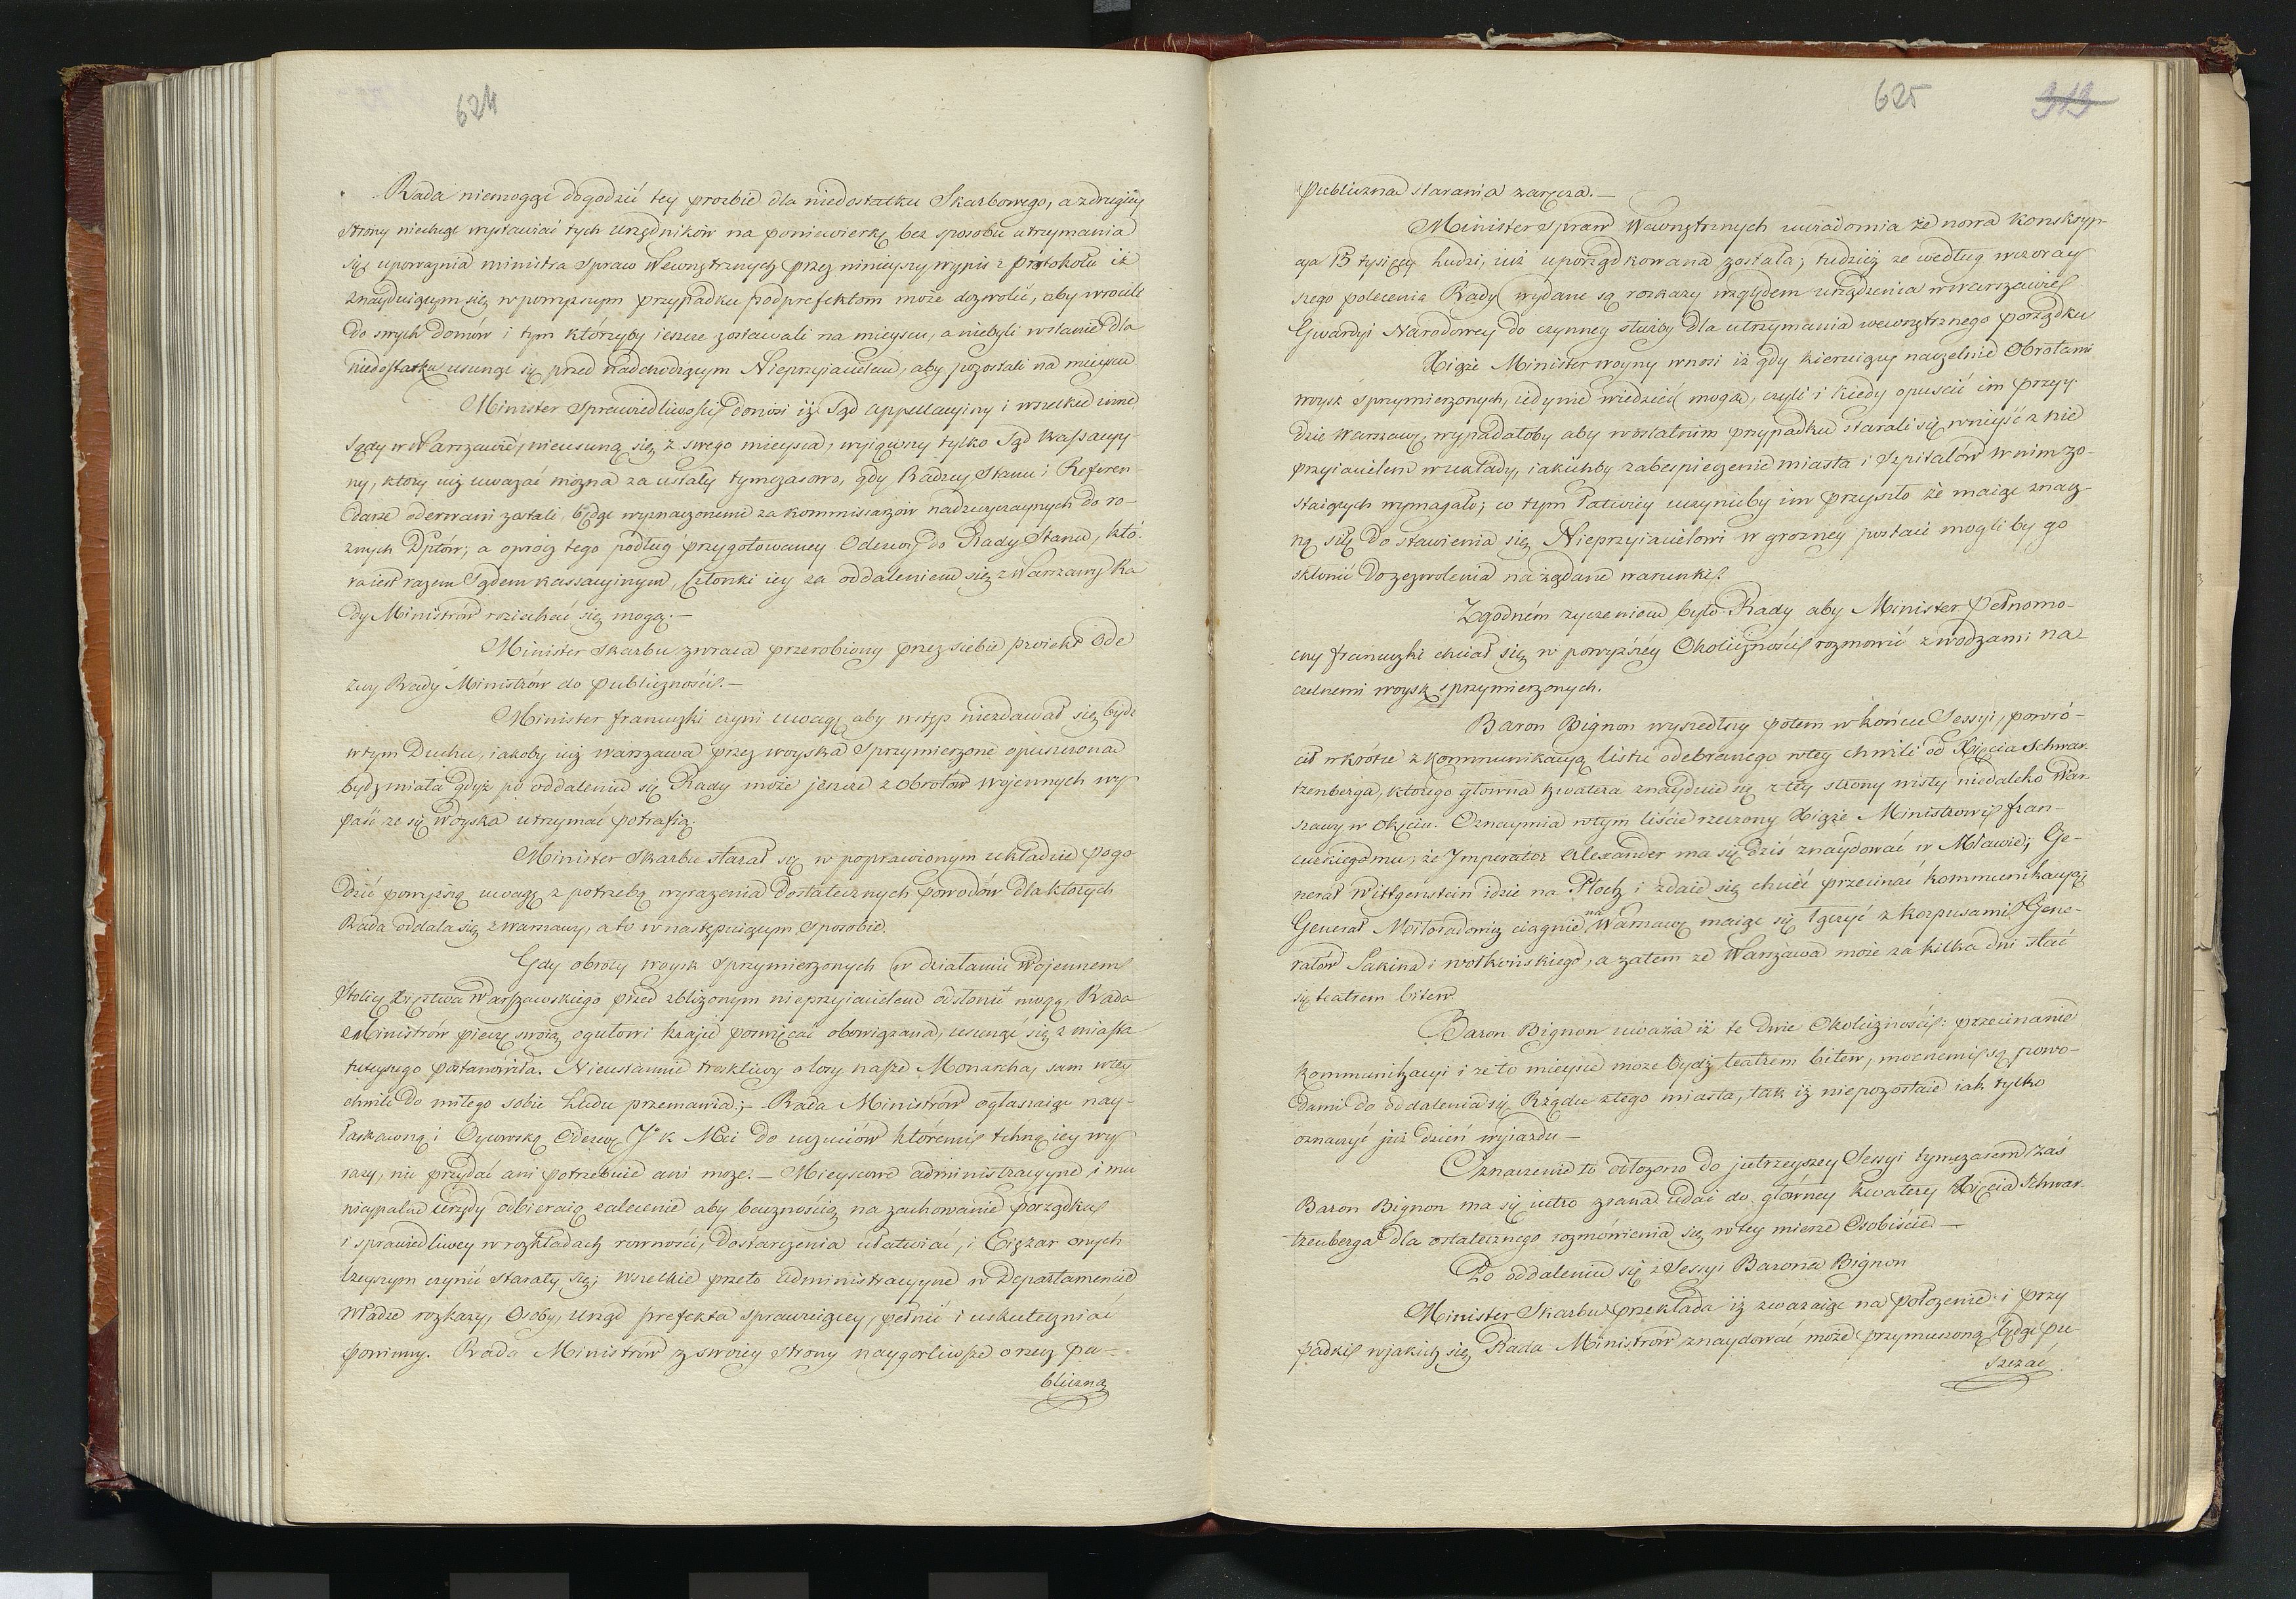 624
Rada niemogąc dogodzić tey prozbie dla niedostatku Skarbowego, a z drugiey
strony niechcąc wystawiać tych Urzędników na poniewierkę bez sposobu utrzymania
się upoważnia ministra Spraw Wewnętrznych przez ninieyszy wypis z protokołu iż
znayduiącym się w pomyższym przypadku podprefektom może dozwolić, aby wrócili
do swych domów i tym którzyby ieszcze zostawali na mieyscu, a niebyli wstanie dla
niedostatku usunąć się przed nadchodzącym Nieprzyiacielem, aby pozostali na mieyscu
Minister Sprawiedliwości donosi iż Sąd appellacyiny i wszelkie inne
Sądy w Warszawie, nieusuną się z swego mieysca, wyiąwszy tylko Sąd Kassacyy-
ny, który iuż uważać można za ustały tymczasowo, gdy Radzcy Stanu i Referen-
darze oderwani zostali, będąc wyznaczonemi za kommissarzów nadzwyczaynych do ro-
żnych Dptów; a oprócz tego podług przygotowaney Odezwy do Rady Stanu, któ-
ra iest razem Sądem kassacyinym, Członki iey za oddaleniem się z Warszawy Ra
dy Ministrów roziechać się mogą.—
Minister Skarbu zwraca przerobiony przez siebie proiekt Ode
zwy Rady Ministrów do publiczności.—
Minister francuzki czyni uwagę aby wstęp niezdawał się bydź
w tym Duchu, iakoby iuż Warszawa przez woyska Sprzymierzone opuszczona
bydź miała gdyż po oddaleniu się Rady może jeszcze z obrotów wojennych wy
paść ze się Woyska utrzymać potrafią.
Minister Skarbu starał się w poprawionym układzie pogo
dzić powyższą uwagę z potrzebą wyrażenia dostatecznych powodów dla których
Rada oddala się z Warszawy, a to w następuiącym sposobie.
Gdy obroty woysk Sprzymierzonych w działaniu Wojennem
stolicę Xięstwa Warszawskiego przed zbliżonym nieprzyiacielem odsłonić mogą, Rada
Ministrów pieczę swoią ogułowi kraju poswięcać obowiązana, usunąć się z miasta
tuteyszego postanowiła. Nieustannie troskliwy o losy nasze Monarcha, sam w tey
chwili do miłego sobie Ludu przemawia;- Rada Ministrów ogłaszaiąc nay-
łaskawszą i Oycowską Odezwę J° K Mci do uczuciów któremi tchną iey wy
razy, nic przydać ani potrzebuie ani może.— Mieyscowe administracyyne i mu
nicypalne Urzędy odbieraią zalecenie aby bacznością na zachowanie porządku
i sprawiedliwey w rozkładach rowności, dostarczenia ułatwiać, i Ciężar onych
lżeyszym czynić starały się; wszelkie przeto administracyyne w Departamencie
Władze rozkazy, Osoby, Urząd prefekta sprawuiącey, pełnić i uskuteczniać
powinny. Rada Ministrów z swoiey strony naygorliwsze o rzecz pu-
bliczną
625
313
publiczna starania zaręcza.—
Minister Spraw Wewnętrznych uwiadomia że nowa konskryp-
cya 15 tysięcy Ludzi, iuż uporządkowana została; tudzież ze według wczoray
szego polecenia Rady wydane są rozkazy względem urządzenia w Warszawie
Gwardyi Narodowey do czynney służby dla utrzymania wewnętrznego porządku
Xiąże Minister woyny wnosi iż gdy kieruiący naczelnie Obrotami
woysk sprzymierzonych, iedynie wiedzieć mogą, czyli i kiedy opuscić im przyy-
dzie Warszawę, wypadałoby aby w ostatnim przypadku starali się wniyść z nie
przyiacielem w układy, iakichby zabespieczenie miasta i Szpitalów w nim zo-
staiących wymagało; co tym łatwiey uczynićby im przyszło że maiąc znacz-
ną siłę do stawienia się Nieprzyiacielowi w grozney postaci mogliby go
skłonić do zezwolenia na żądane warunki.
Zgodném życzeniem było Rady aby Minister Pełnomo-
cny francuzki chciał się w powyższéy Okoliczności rozmowić z wodzami na
czelnemi woysk sprzymierzonych.
Baron Bignon wyszedłszy potem w końcu Sessyi, powró-
cił wkrótce z kommunikacyą listu odebranego w tey chwili od Xięcia Schwar-
tzenberga, ktorego głowna kwatera znayduie się z tey strony wisły niedaleko War-
szawy w Okęciu. Oznaymia w tym liście rzeczony Xiąże Ministrowi fran-
cuzkiemu, że Imperator Alexander ma się dziś znaydować w Mławie; Ge-
nerał Wittgenstein idzie na Płock i zdaie się chcieć przecinać kommunikacyą
Generał Miloradowicz ciągnie na Warszawę maiąc się łączyć z korpusami Gene-
rałów Sakina i Wołkońskiego, a zatem ze Warszawa może za kilka dni stać
się teatrem bitew.
Baron Bignon uważa iż te dwie Okoliczności: przecinanie
kommunikacyi i ze to mieysce może bydź teatrem bitew, mocnemi są powo-
dami do oddalenia się Rządu z tego miasta, tak iż niepozostaie iak tylko
oznaczyć już dzień wyjazdu —
Oznaczenie to odłożono do jutrzeyszey Sessyi tymczasem zaś
Baron Bignon ma się iutro zrana udać do główney kwatery Xięcia Schwar-
tzenberga dla ostatecznego rozmówienia się w tey mierze Osobiście —
Po oddaleniu się z Sessyi Barona Bignon
Minister Skarbu przekłada iż zważaiąc na położenie i przy
padki w jakich się Rada Ministrów znaydować może przymuszoną będąc pu-
szczać